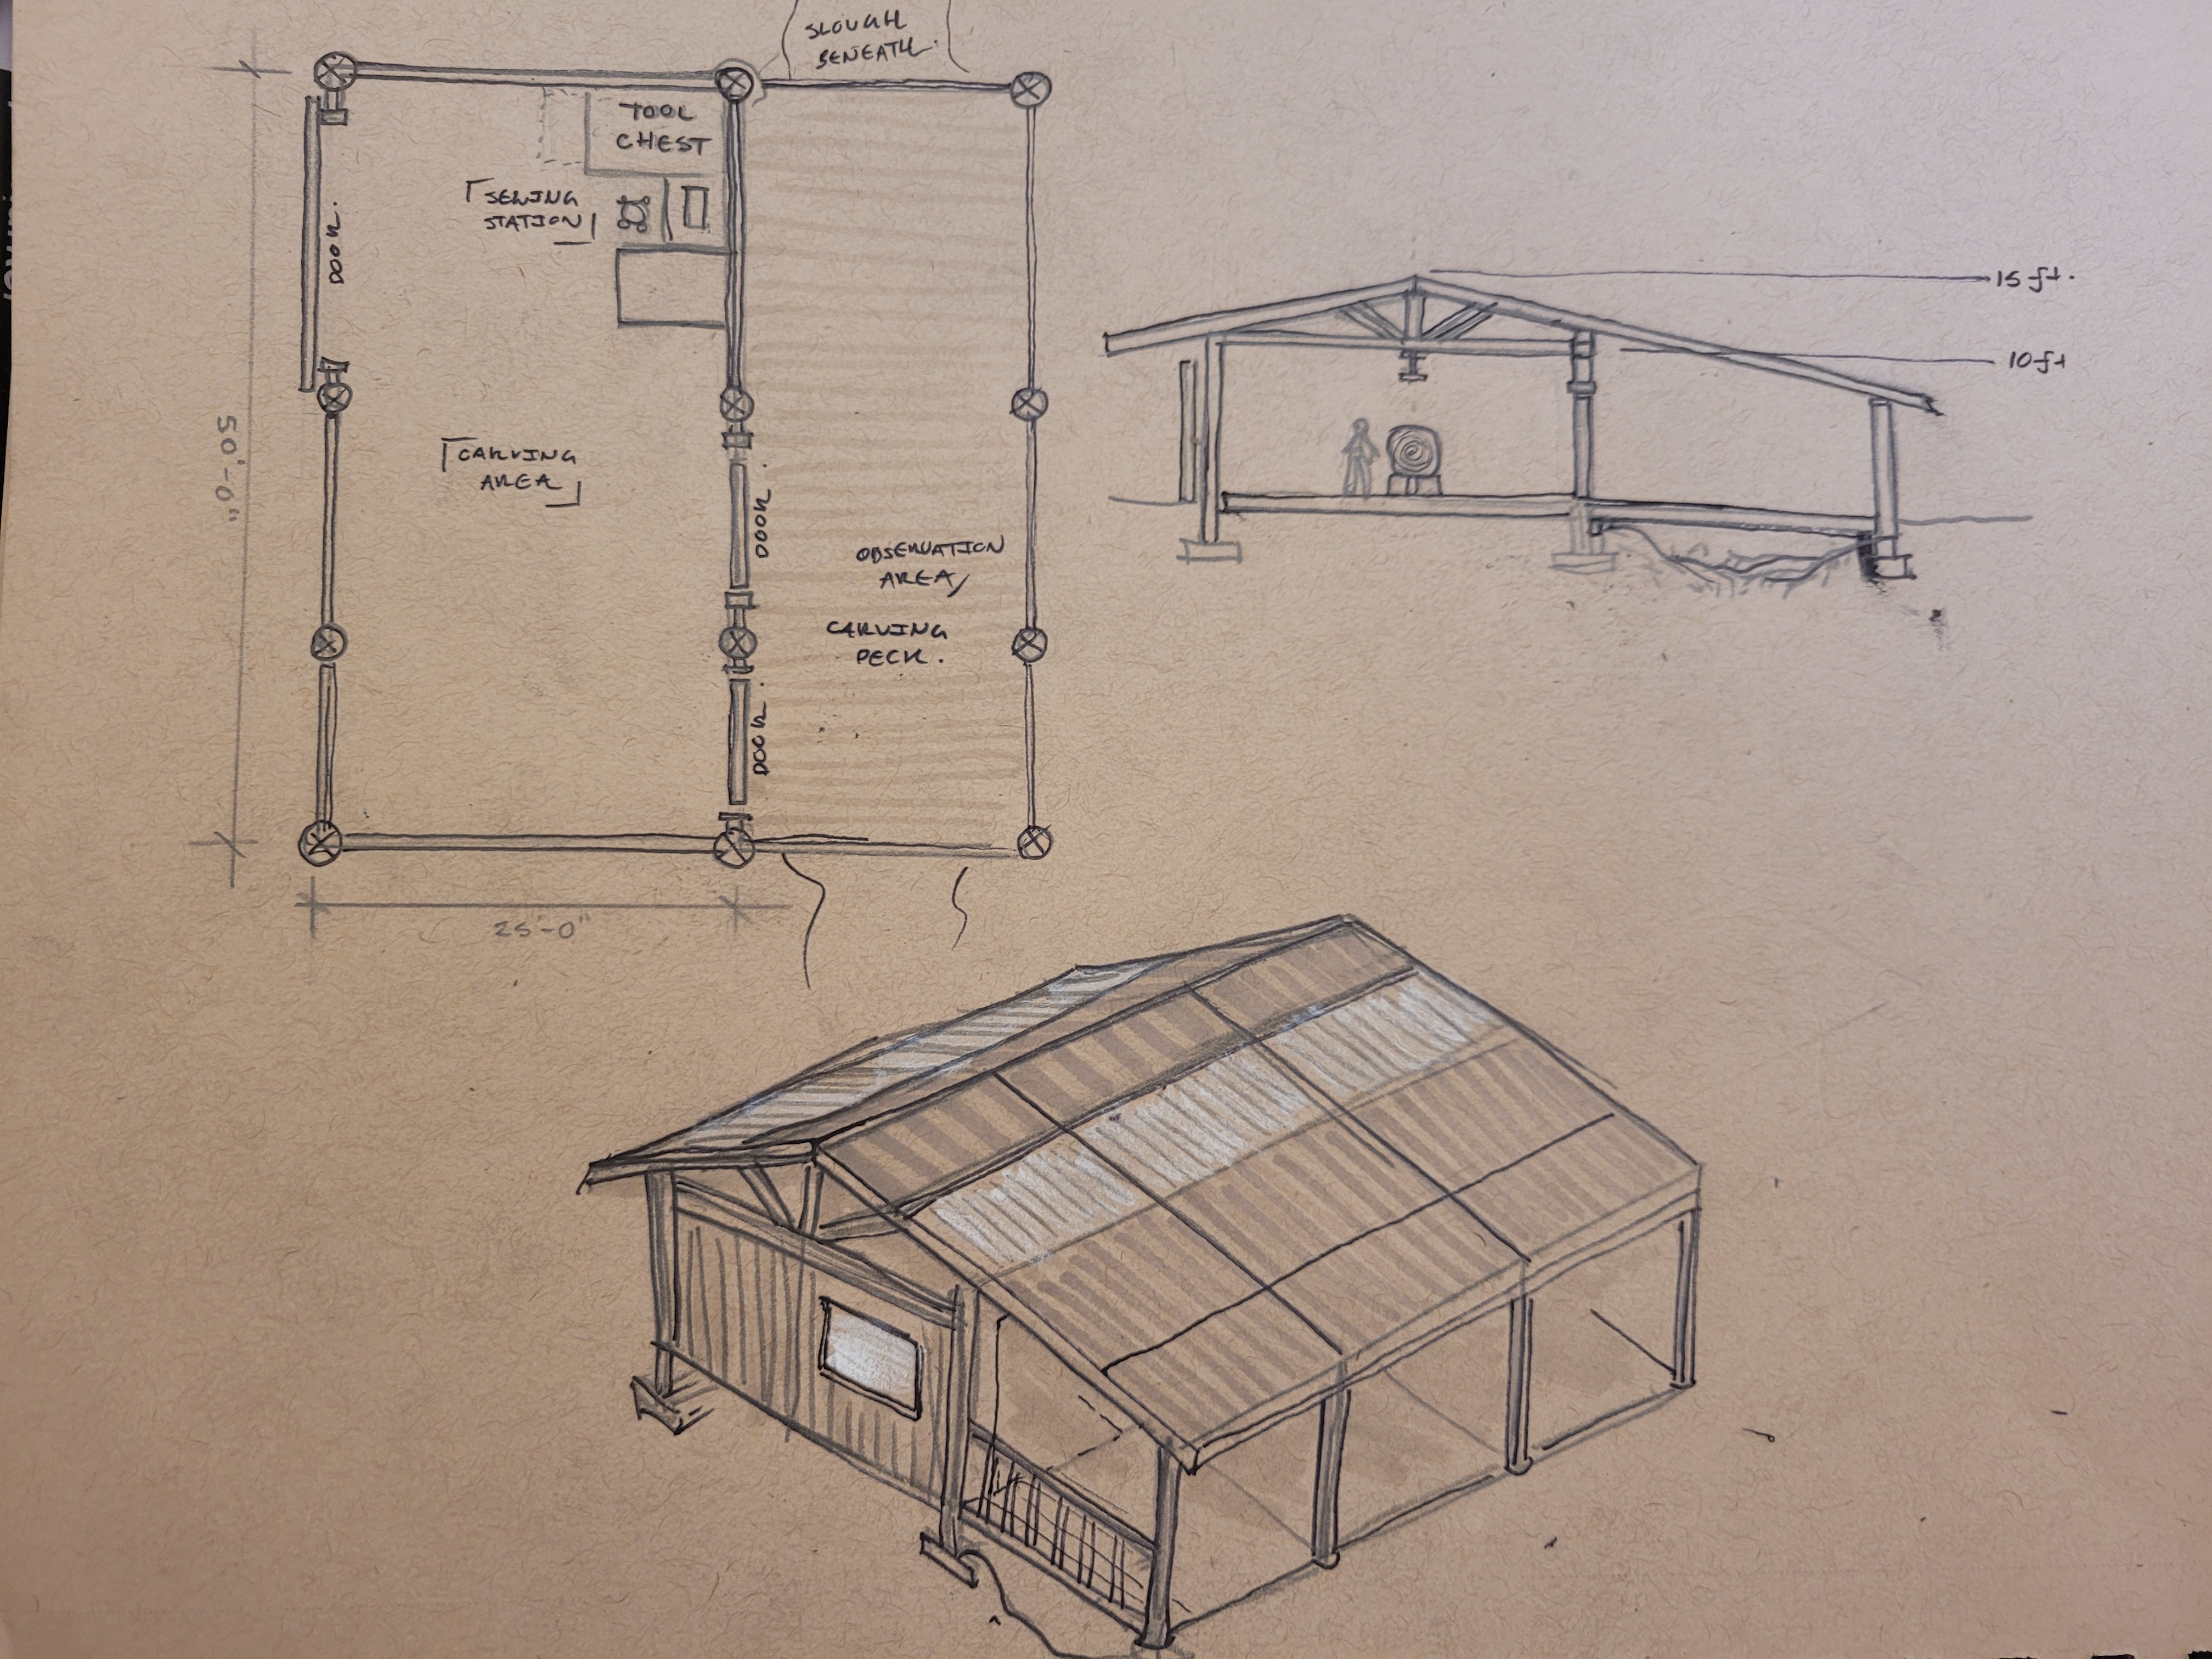 SLOUGH
BENEATH.
TOOL
CHEST
SEWING
STATION
DOOR.
CARVING
AREA
50'-0"
DOOR.
OBSERVATION
AREA/
CARVING
DECK.
DOOR.
25'-0"
15 ft.
10 ft